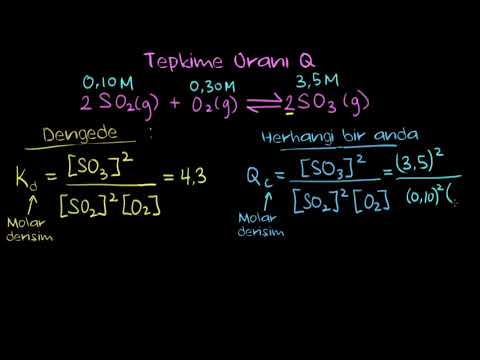 Tepkime Oranı Q
0,10M 0,30M 3,5M
2 SO₂(g) + O₂(g) ⇌ 2SO₃(g)
Dengede :
K_d = [SO₃]² / [SO₂]² [O₂] = 4,3
Molar
derişim
Herhangi bir anda
Q_c = [SO₃]² / [SO₂]² [O₂] = (3,5)² / (0,10)² (
Molar
derişim